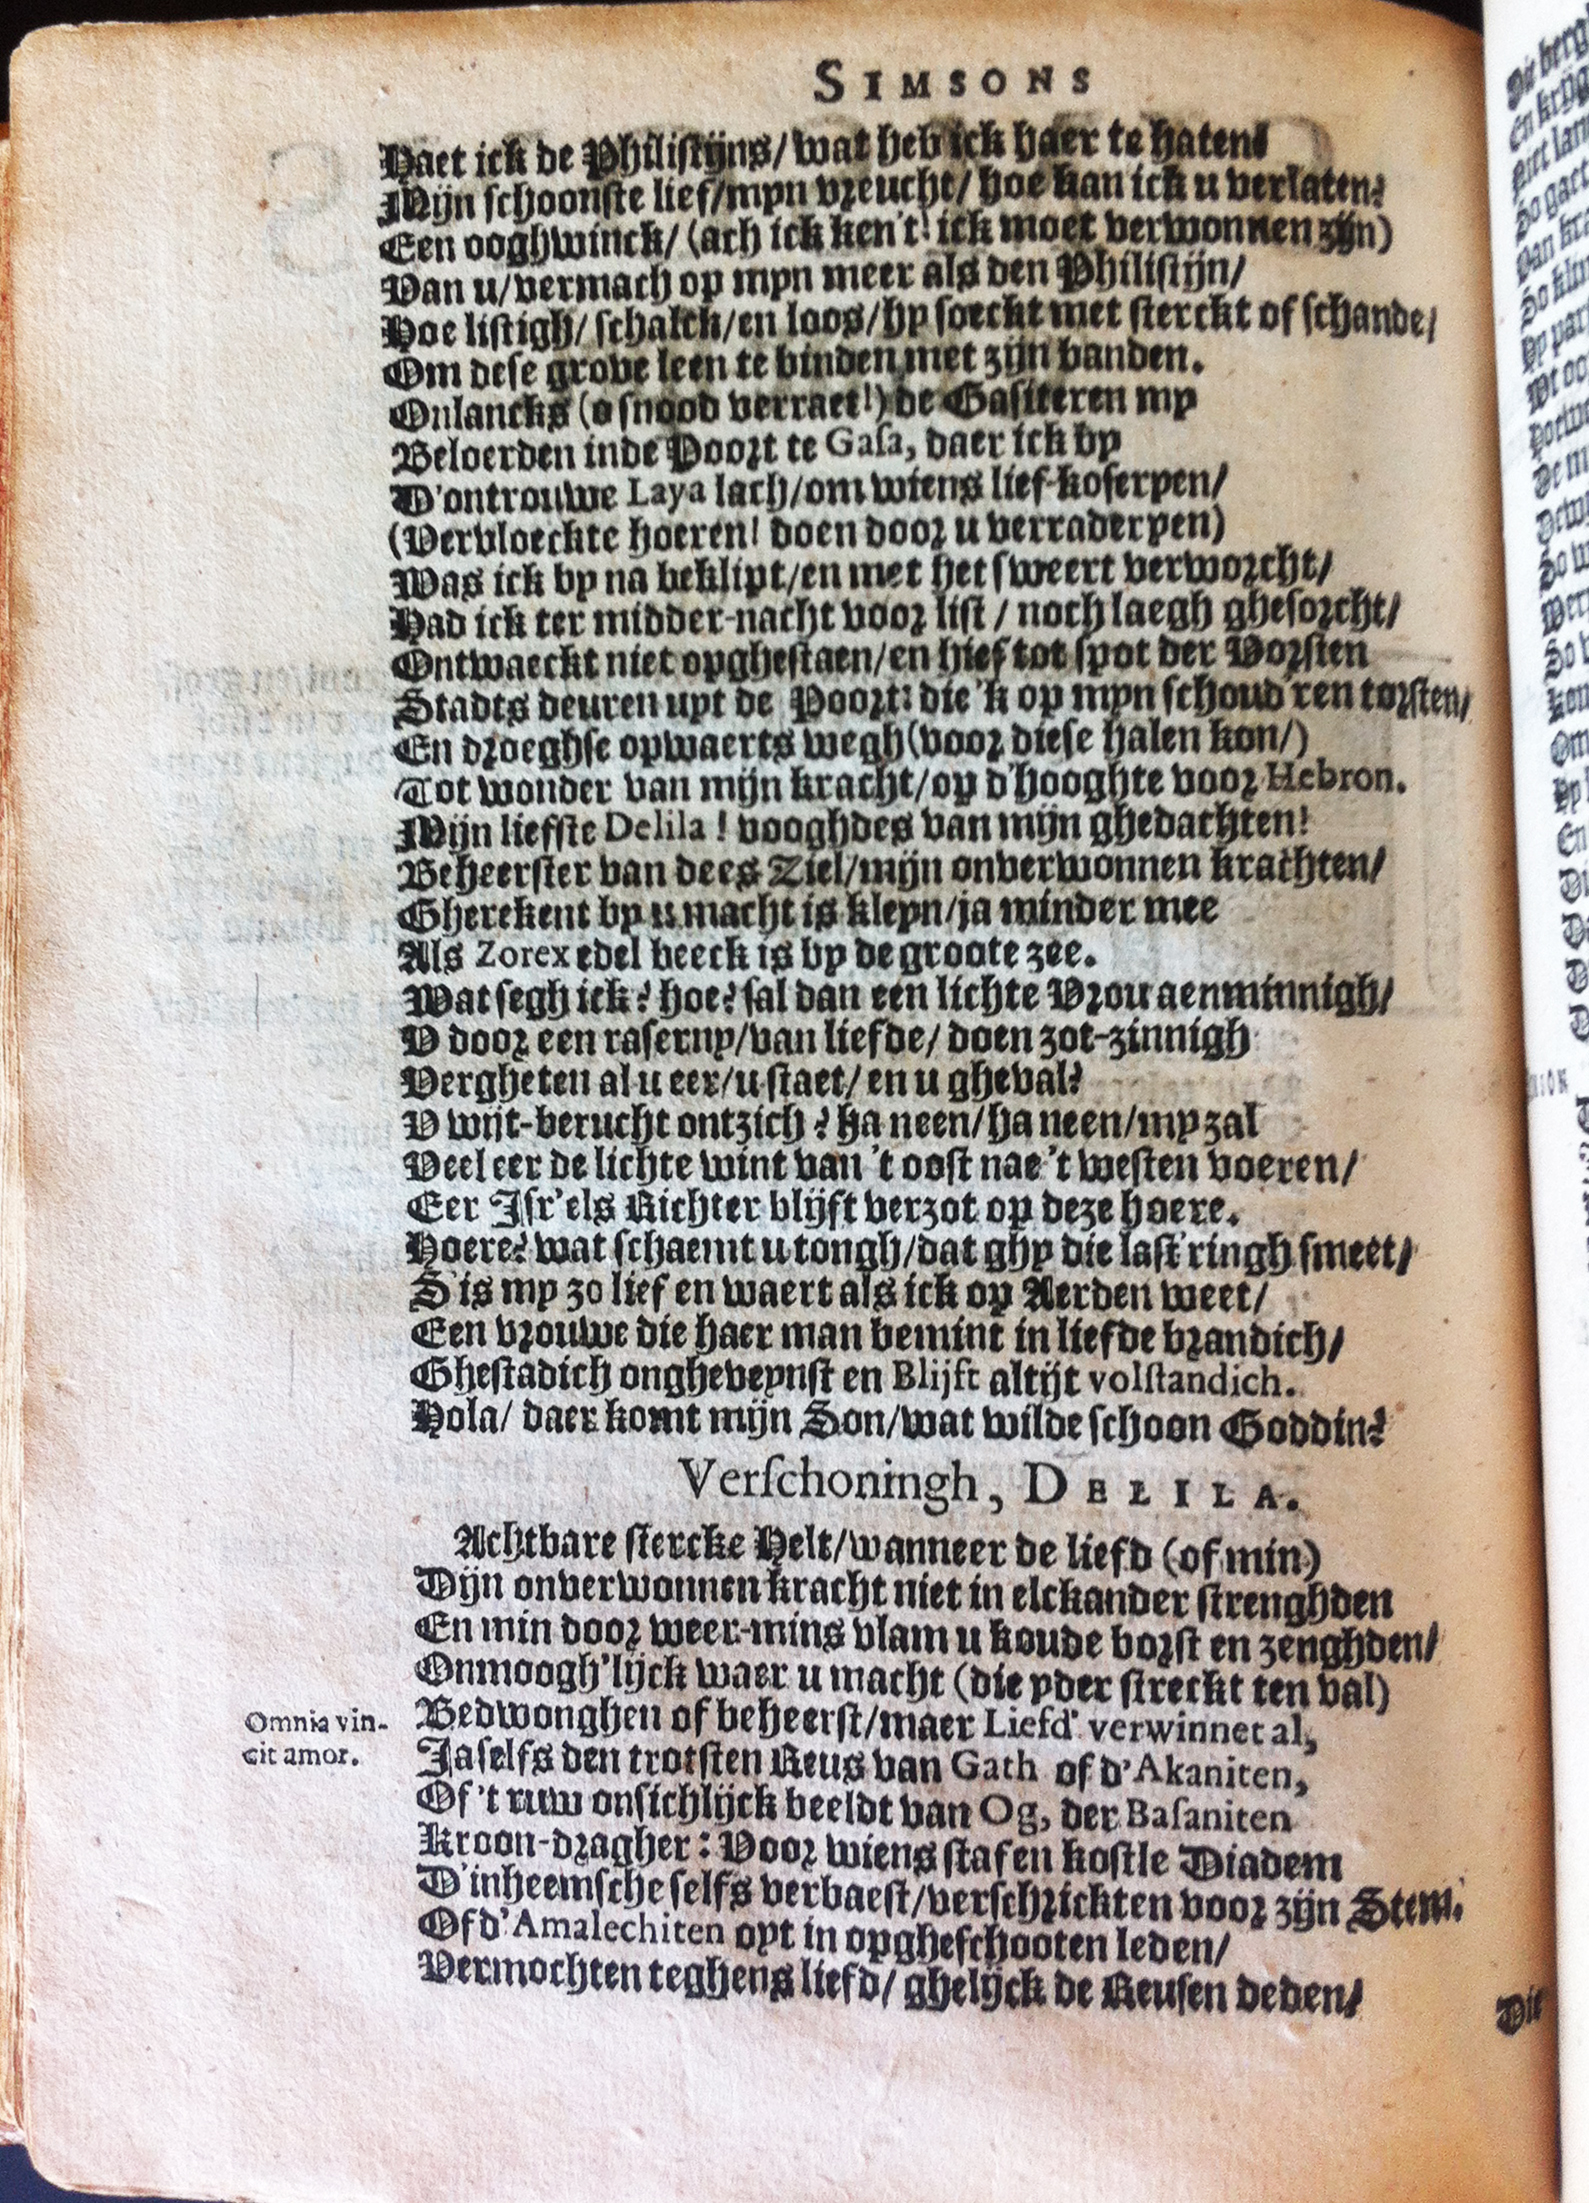 SIMSONS
Haet ick de Philistijns/ wat heb ick haer te haten/
Mijn schoonste lief/ myn vreucht/ hoe kan ick u verlaten?
Een ooghwinck/ (ach ick ken't! ick moet verwonnen zijn)
Van u/ vermach op myn meer als den Philistijn/
Hoe listigh/ schalck/ en loos/ hy soeckt met sterckt of schande/
Om dese grove leen te binden met zijn banden.
Onlancks (o snood verraet!) de Gasiteren my
Beloerden inde Poort te Gasa, daer ick by
D'ontrouwe Laya lach/ om wiens lief-koseryen/
(Vervloeckte hoeren! doen door u verraderyen)
Was ick by na beklipt/ en met het sweert verworcht/
Had ick ter midder-nacht voor list / noch laegh ghesorcht/
Ontwaeckt niet opghestaen/ en hief tot spot der Vorsten
Stadts deuren uyt de Poort: die 'k op myn schoud'ren torsten/
En droeghse opwaerts wegh (voor diese halen kon/)
Tot wonder van mijn kracht/ op d'hooghte voor Hebron.
Mijn liefste Delila ! vooghdes van mijn ghedachten!
Beheerster van dees Ziel/ mijn onverwonnen krachten/
Gherekent by u macht is kleyn/ ja minder mee
Als Zorex edel beeck is by de groote zee.
Wat segh ick? hoe? sal dan een lichte Vrou aenminnigh/
V door een raserny/ van liefde/ doen zot-zinnigh
Vergheten al u eer/ u staet/ en u gheval?
V wijt-berucht ontzich ? ha neen/ ha neen/ my zal
Veel eer de lichte wint van 't oost nae 't westen voeren/
Eer Isr'els Richter blijft verzot op deze hoere.
Hoere? wat schaemt u tongh/ dat ghy die last'ringh smeet/
S'is my zo lief en waert als ick op Aerden weet/
Een vrouwe die haer man bemint in liefde brandich/
Ghestadich ongheveynst en Blijft altijt volstandich.
Hola/ daer komt mijn Son/ wat wilde schoon Goddin?
Verschoningh, DELILA.
Achtbare stercke Helt/ wanneer de liefd (of min)
Dijn onverwonnen kracht niet in elckander strenghden
En min door weer-mins vlam u koude borst en zenghden/
Onmoogh'lijck waer u macht (die yder streckt ten val)
Bedwonghen of beheerst/ maer Liefd' verwinnet al,
Omnia vin-
cit amor.
Ja selfs den trotsten Reus van Gath of d'Akaniten,
Of 't ruw onsichlijck beeldt van Og, der Basaniten
Kroon-dragher : Voor wiens staf en kostle Diadem
D'inheemsche selfs verbaest/ verschrickten voor zijn Stem.
Of d'Amalechiten oyt in opgheschooten leden/
Vermochten teghens liefd/ ghelijck de Reusen deden/
Die